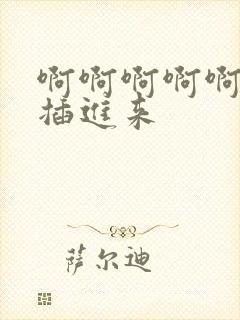 啊啊啊啊啊
插進来
萨尔迪